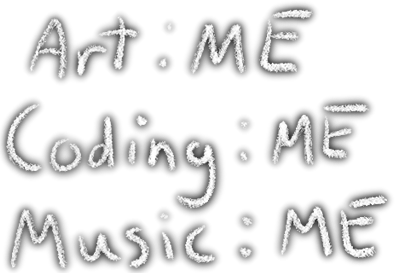 Art: ME
Coding: ME
Music: ME